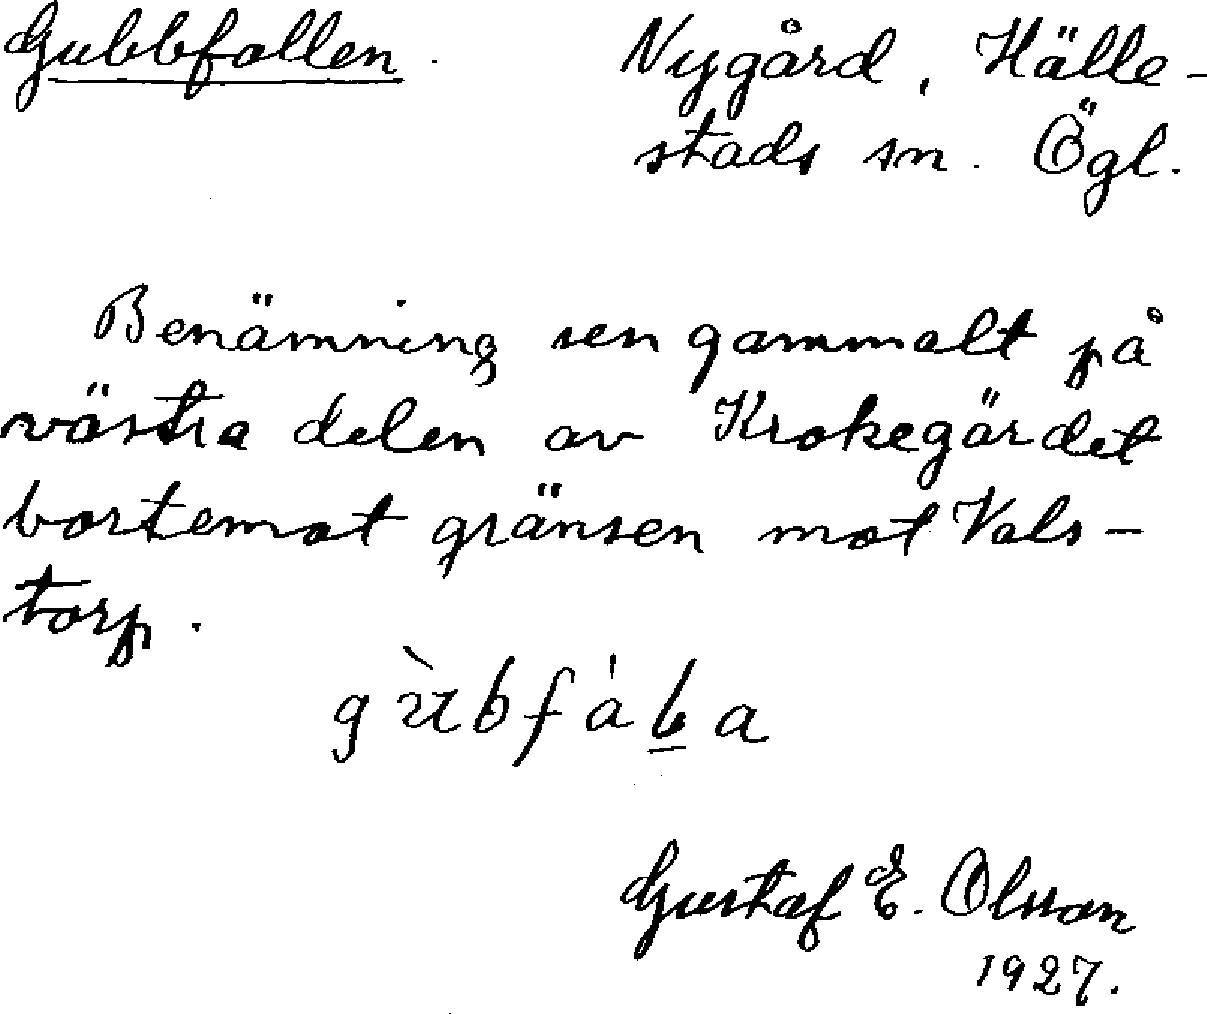 Gubbfallen. Nygård, Hälle-
stads sn. Ögl.
Benämning sen gammalt på
västra delen av Krokegärdet
bortemot gränsen mot Vals-
torp.
Gustaf E. Olsson
1927.